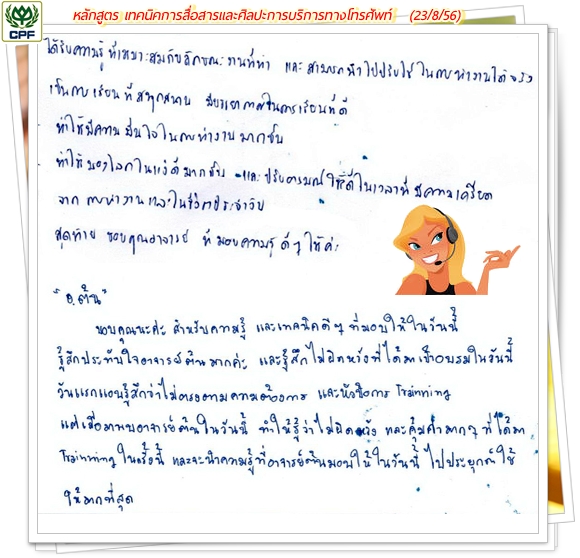 หลักสูตร เทคนิคการสื่อสารและศิลปะการบริการทางโทรศัพท์ (23/8/56)
CPF
ได้รับความรู้ที่เหมาะสมกับลักษณะงานที่ทำ และสามารถนำไปปรับใช้ในการทำงานได้จริง
เป็นการเรียนที่สนุกสนาน มีบรรยากาศในการเรียนที่ดี
ทำให้มีความมั่นใจในการทำงานมากขึ้น
ทำให้มองโลกในแง่ดีมากขึ้น และปรับอารมณ์ให้ดีในเวลาที่มีความเครียด
จากการทำงานและในชีวิตประจำวัน
สุดท้าย ขอบคุณอาจารย์ ที่มอบความรู้ดีๆ ให้ค่ะ
"อ.ต้น"
ขอบคุณนะค่ะ สำหรับความรู้ และเทคนิคดีๆ ที่มอบให้ในวันนี้
รู้สึกประทับใจอาจารย์ต้นมากค่ะ และรู้สึกไม่ผิดหวังที่ได้มาเข้าอบรมในวันนี้
วันแรกแอบรู้สึกว่าไม่ตรงตามความต้องการ และหัวข้อการ Trainning
แต่เมื่อมาพบอาจารย์ต้นในวันนี้ ทำให้รู้ว่าไม่ผิดหวัง และคุ้มค่ามากๆ ที่ได้มา
Trainning ในครั้งนี้ และจะนำความรู้ที่อาจารย์ต้นมอบให้ในวันนี้ ไปประยุกต์ใช้
ให้มากที่สุด